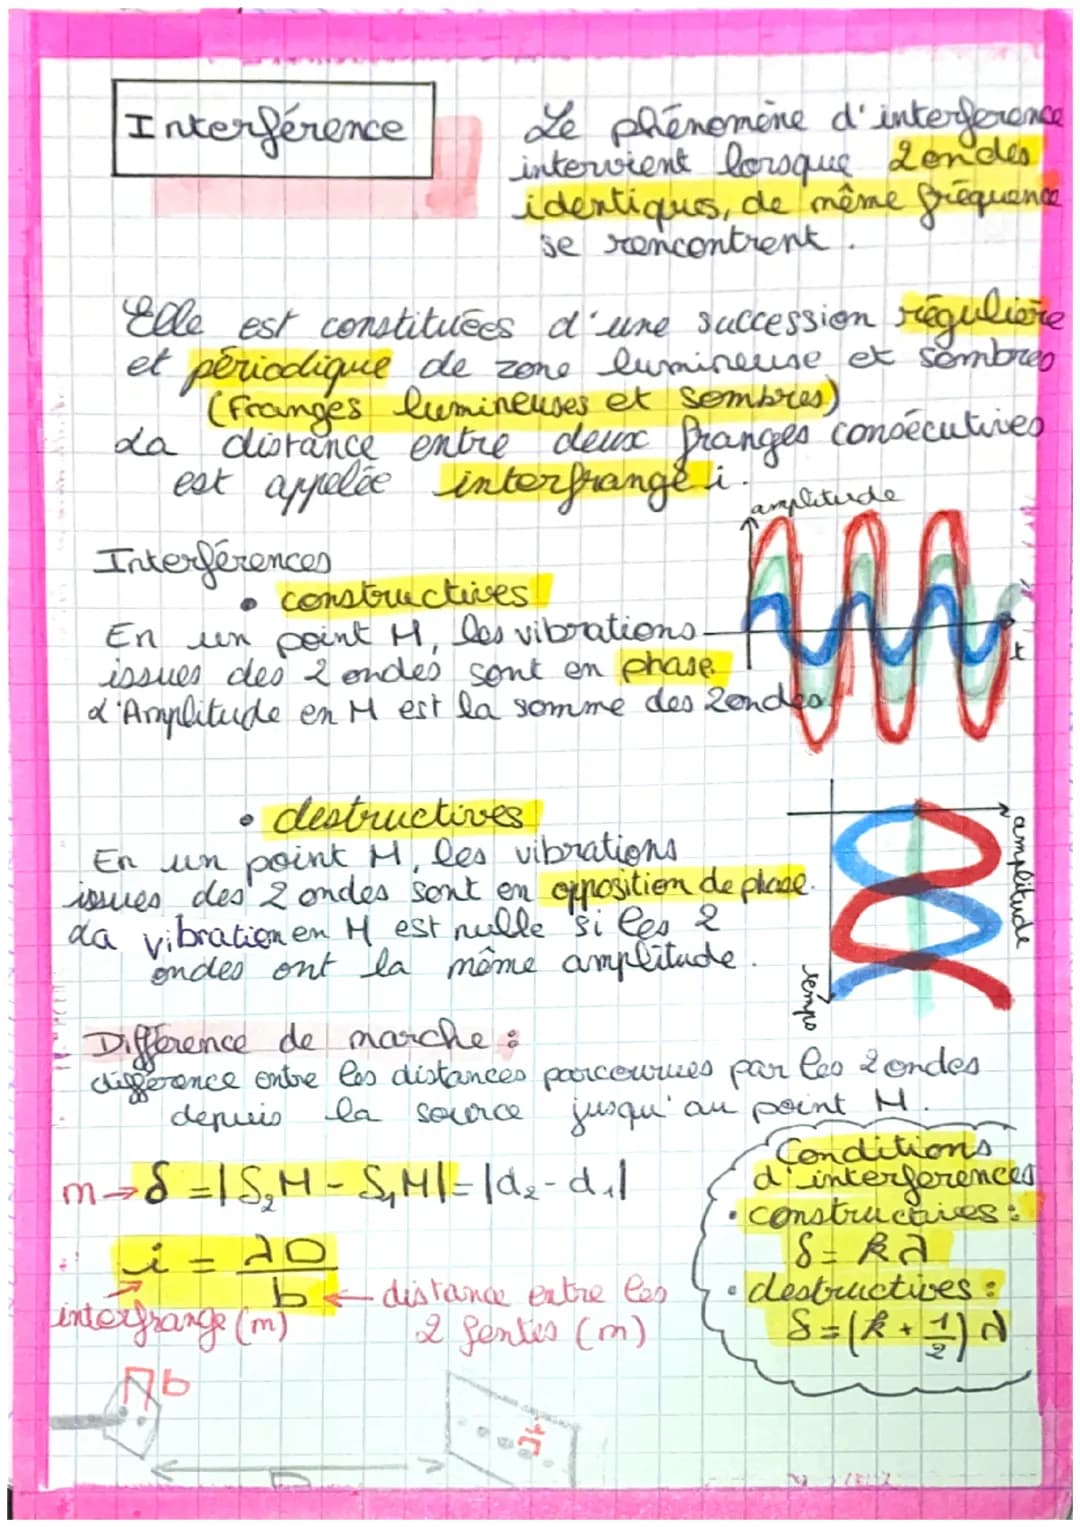 Interférence
Le phénomène d'interference
intervient lorsque 2 ondes
identiques, de même fréquence
se rencontrent.
Elle est constituées d'une succession régulière
et périodique de zone lumineuse et sombres
(Franges lumineuses et sombres)
La distance entre deux franges consécutives
est appelée interfrange i.
amplitude
t
Interférences
• constructives
En un point M, les vibrations
issues des 2 ondes sont en phase
L'Amplitude en M est la somme des 2 ondes.
• destructives
En un point M, les vibrations
issues des 2 ondes sont en opposition de phase.
La vibration en M est nulle si les 2
ondes ont la même amplitude.
amplitude
temps
Différence de marche :
différence entre les distances parcourues par les 2 ondes
depuis la source jusqu'au point M.
m → δ = |S₂M - S₁M| = |d₂ - d₁|
i = λD / b
interfrange (m)
← distance entre les
2 fentes (m)
Conditions
d'interferences
• constructives :
δ = kλ
• destructives :
δ = (k + 1/2) λ
b
i
D